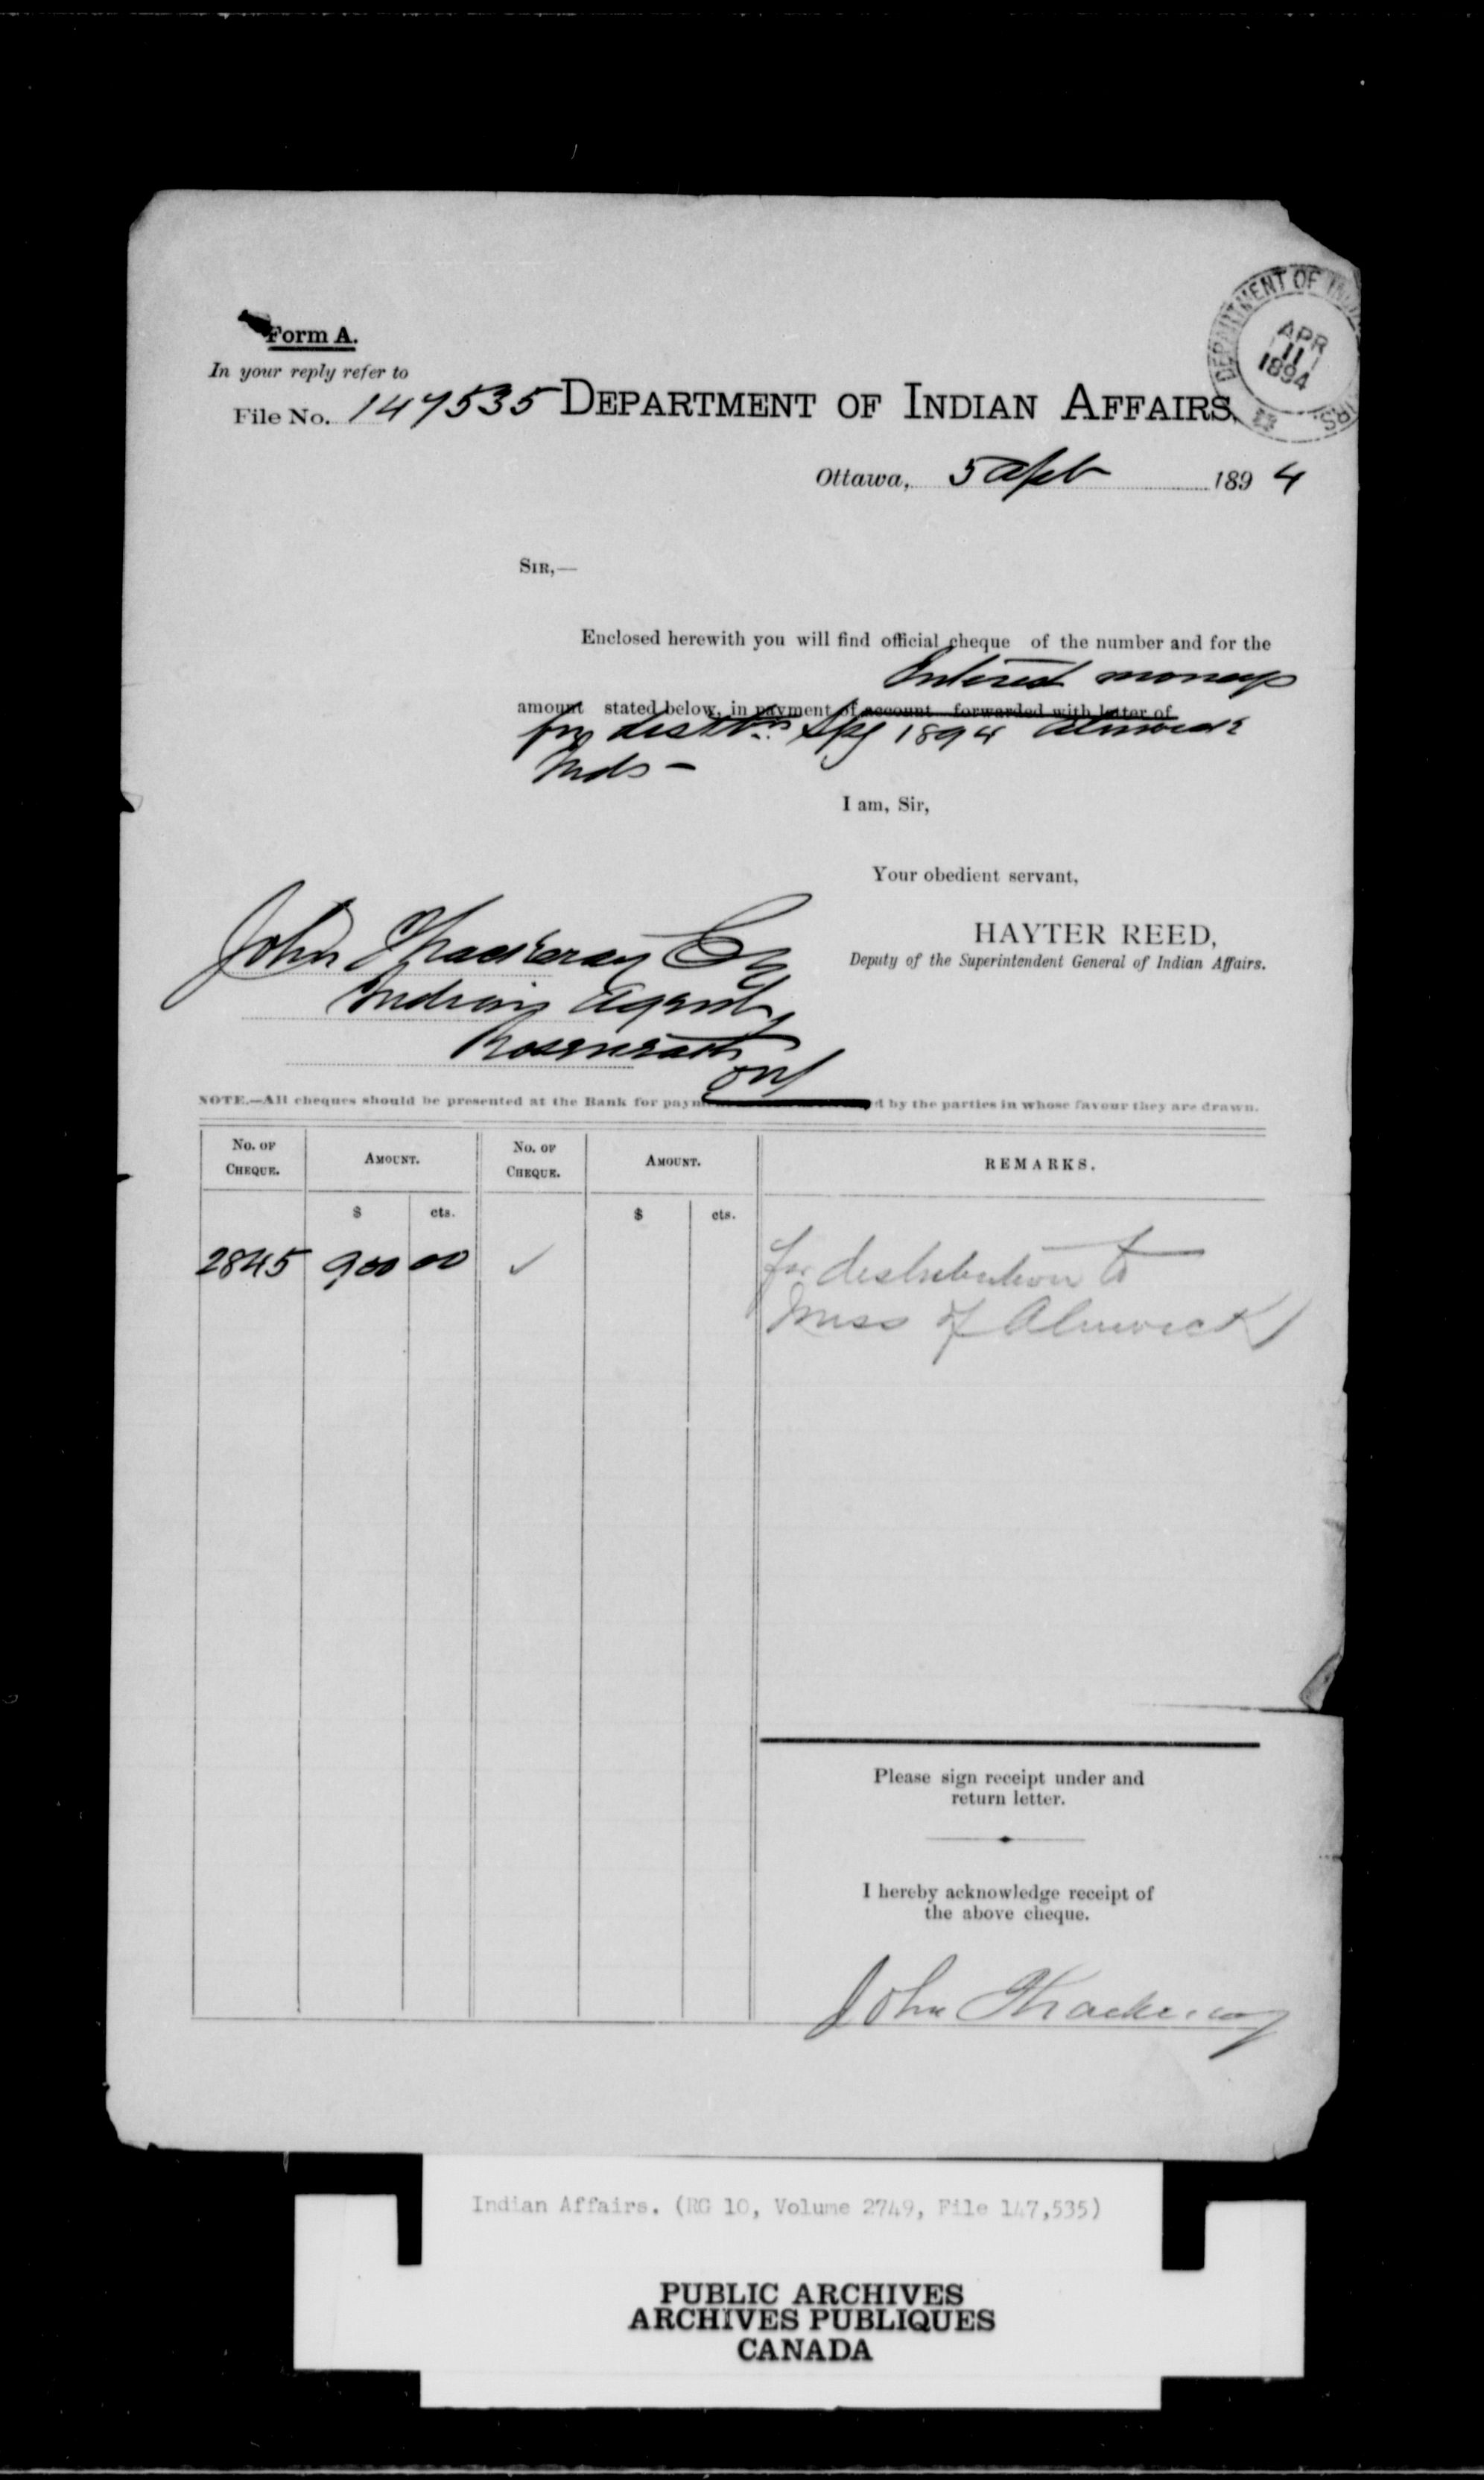 Form A.
In your reply refer to
File No. 147535
DEPARTMENT OF INDIAN AFFAIRS,
DEPARTMENT OF
APR
11
1894
Ottawa, 5 Apl 1894
SIR,—
Enclosed herewith you will find official cheque of the number and for the
Interest moneys
amount stated below, in payment of account forwarded with letter of
for distbn. Spg 1894 Alnwick
Inds —
I am, Sir,
Your obedient servant,
HAYTER REED,
Deputy of the Superintendent General of Indian Affairs.
John Thackeray Esq
Indian Agent,
Roseneath
Ont
NOTE.—All cheques should be presented at the Bank for payment by the parties in whose favour they are drawn.
No. OF CHEQUE. AMOUNT. No. OF CHEQUE. AMOUNT. REMARKS.
$ cts. $ cts.
2845 900 00 ✓ for distribution to
Miss of Alnwick
Please sign receipt under and
return letter.
I hereby acknowledge receipt of
the above cheque.
John Thackeray
Indian Affairs. (RG 10, Volume 2749, File 147,535)
PUBLIC ARCHIVES
ARCHIVES PUBLIQUES
CANADA